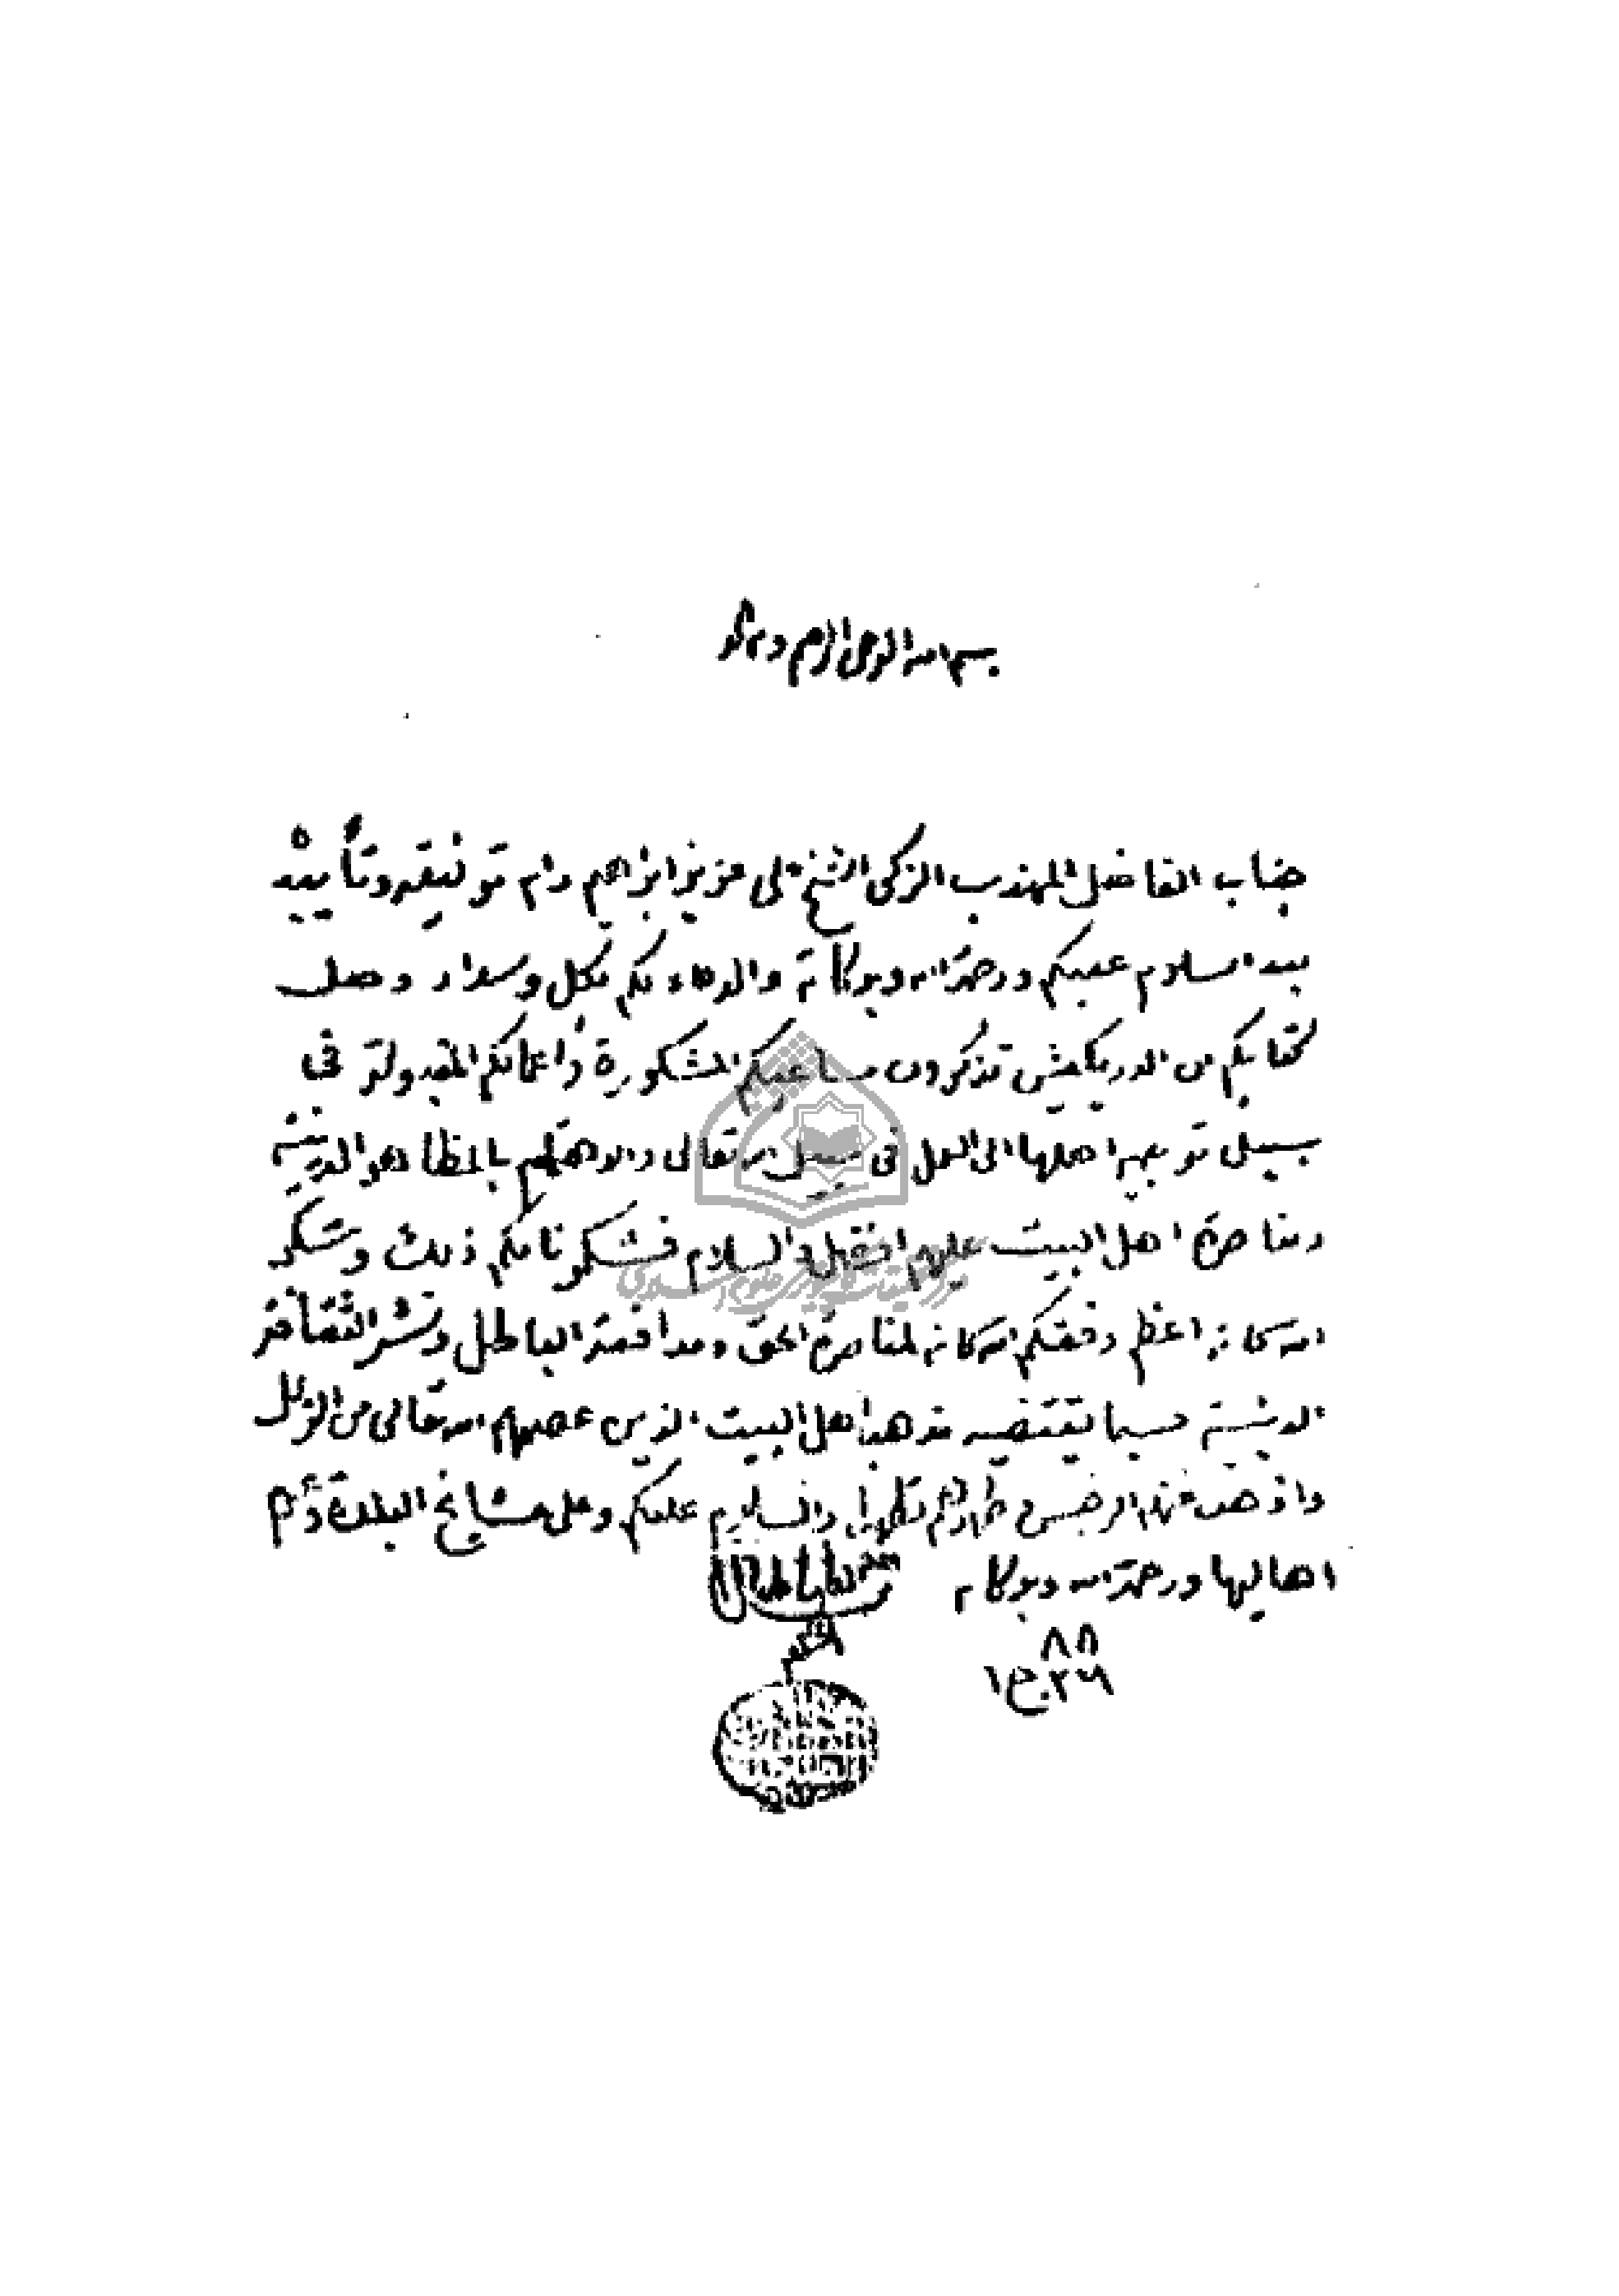 بسم الله الرحمن الرحيم وله الحمد
جناب الفاضل المهذب الزكي الشيخ علي عزيز ابراهيم دام توفيقه وتأييده
بعد السلام عليكم ورحمة الله وبركاته والدعاء لكم بكل وسداد وصل
كتابكم من الدريكيش تذكرون مساعيكم المشكورة وأعمالكم المقبولة في
سبيل توجيه اهلها الى العمل في سبيل الله تعالى والاهتمام بالمظاهر الدينية
ومناصرة اهل البيت عليهم افضل السلام فشكرنا لكم ذلك وشكر
الله سبحانه اعظم وفقكم الله سبحانه لمناصرة الحق ومدافعة الباطل ونشر الثقافة
الدينية حسبما يقتضيه مذهب اهل البيت الذين عصمهم الله تعالى من الزلل
واذهب عنهم الرجس وطهرهم تطهيرا والسلام عليكم وعلى مشايخ البلدة
اهاليها ورحمة الله وبركاته
٨٥
٢٦ ج ١